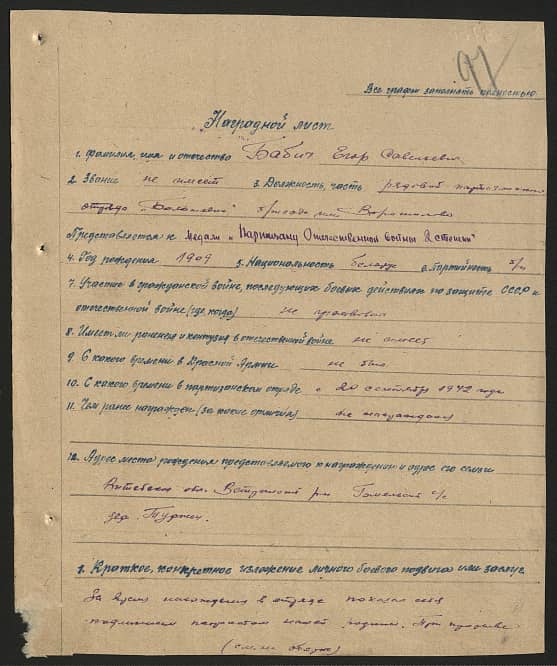 97
Все графы заполнять полностью
Наградной лист
1. Фамилия, имя и отчество Бабич Егор Савельевич
2. Звание не имеет 3. Должность, часть рядовой партизанского
отряда "Большевик" бригады им. Ворошилова
Представляется к медали "Партизану Отечественной войны 2 степени"
4. Год рождения 1909 5. Национальность белорус 6. Партийность б/п
7. Участие в гражданской войне, последующих боевых действиях по защите СССР и
отечественной войне (где, когда) не принимал
8. Имеет ли ранения и контузии в отечественной войне не имеет
9. С какого времени в Красной Армии не был
10. С какого времени в партизанском отряде с 20 сентября 1942 года
11. Чем ранее награжден (за какие отличия) не награждался
12. Адрес места рождения представляемого к награждению и адрес его семьи
Витебская обл. р-н с/с
дер.
1. Краткое, конкретное изложение личного боевого подвига или заслуг
За время нахождения в отряде показал себя
подлинным патриотом нашей родины. При
(см. на обор.)